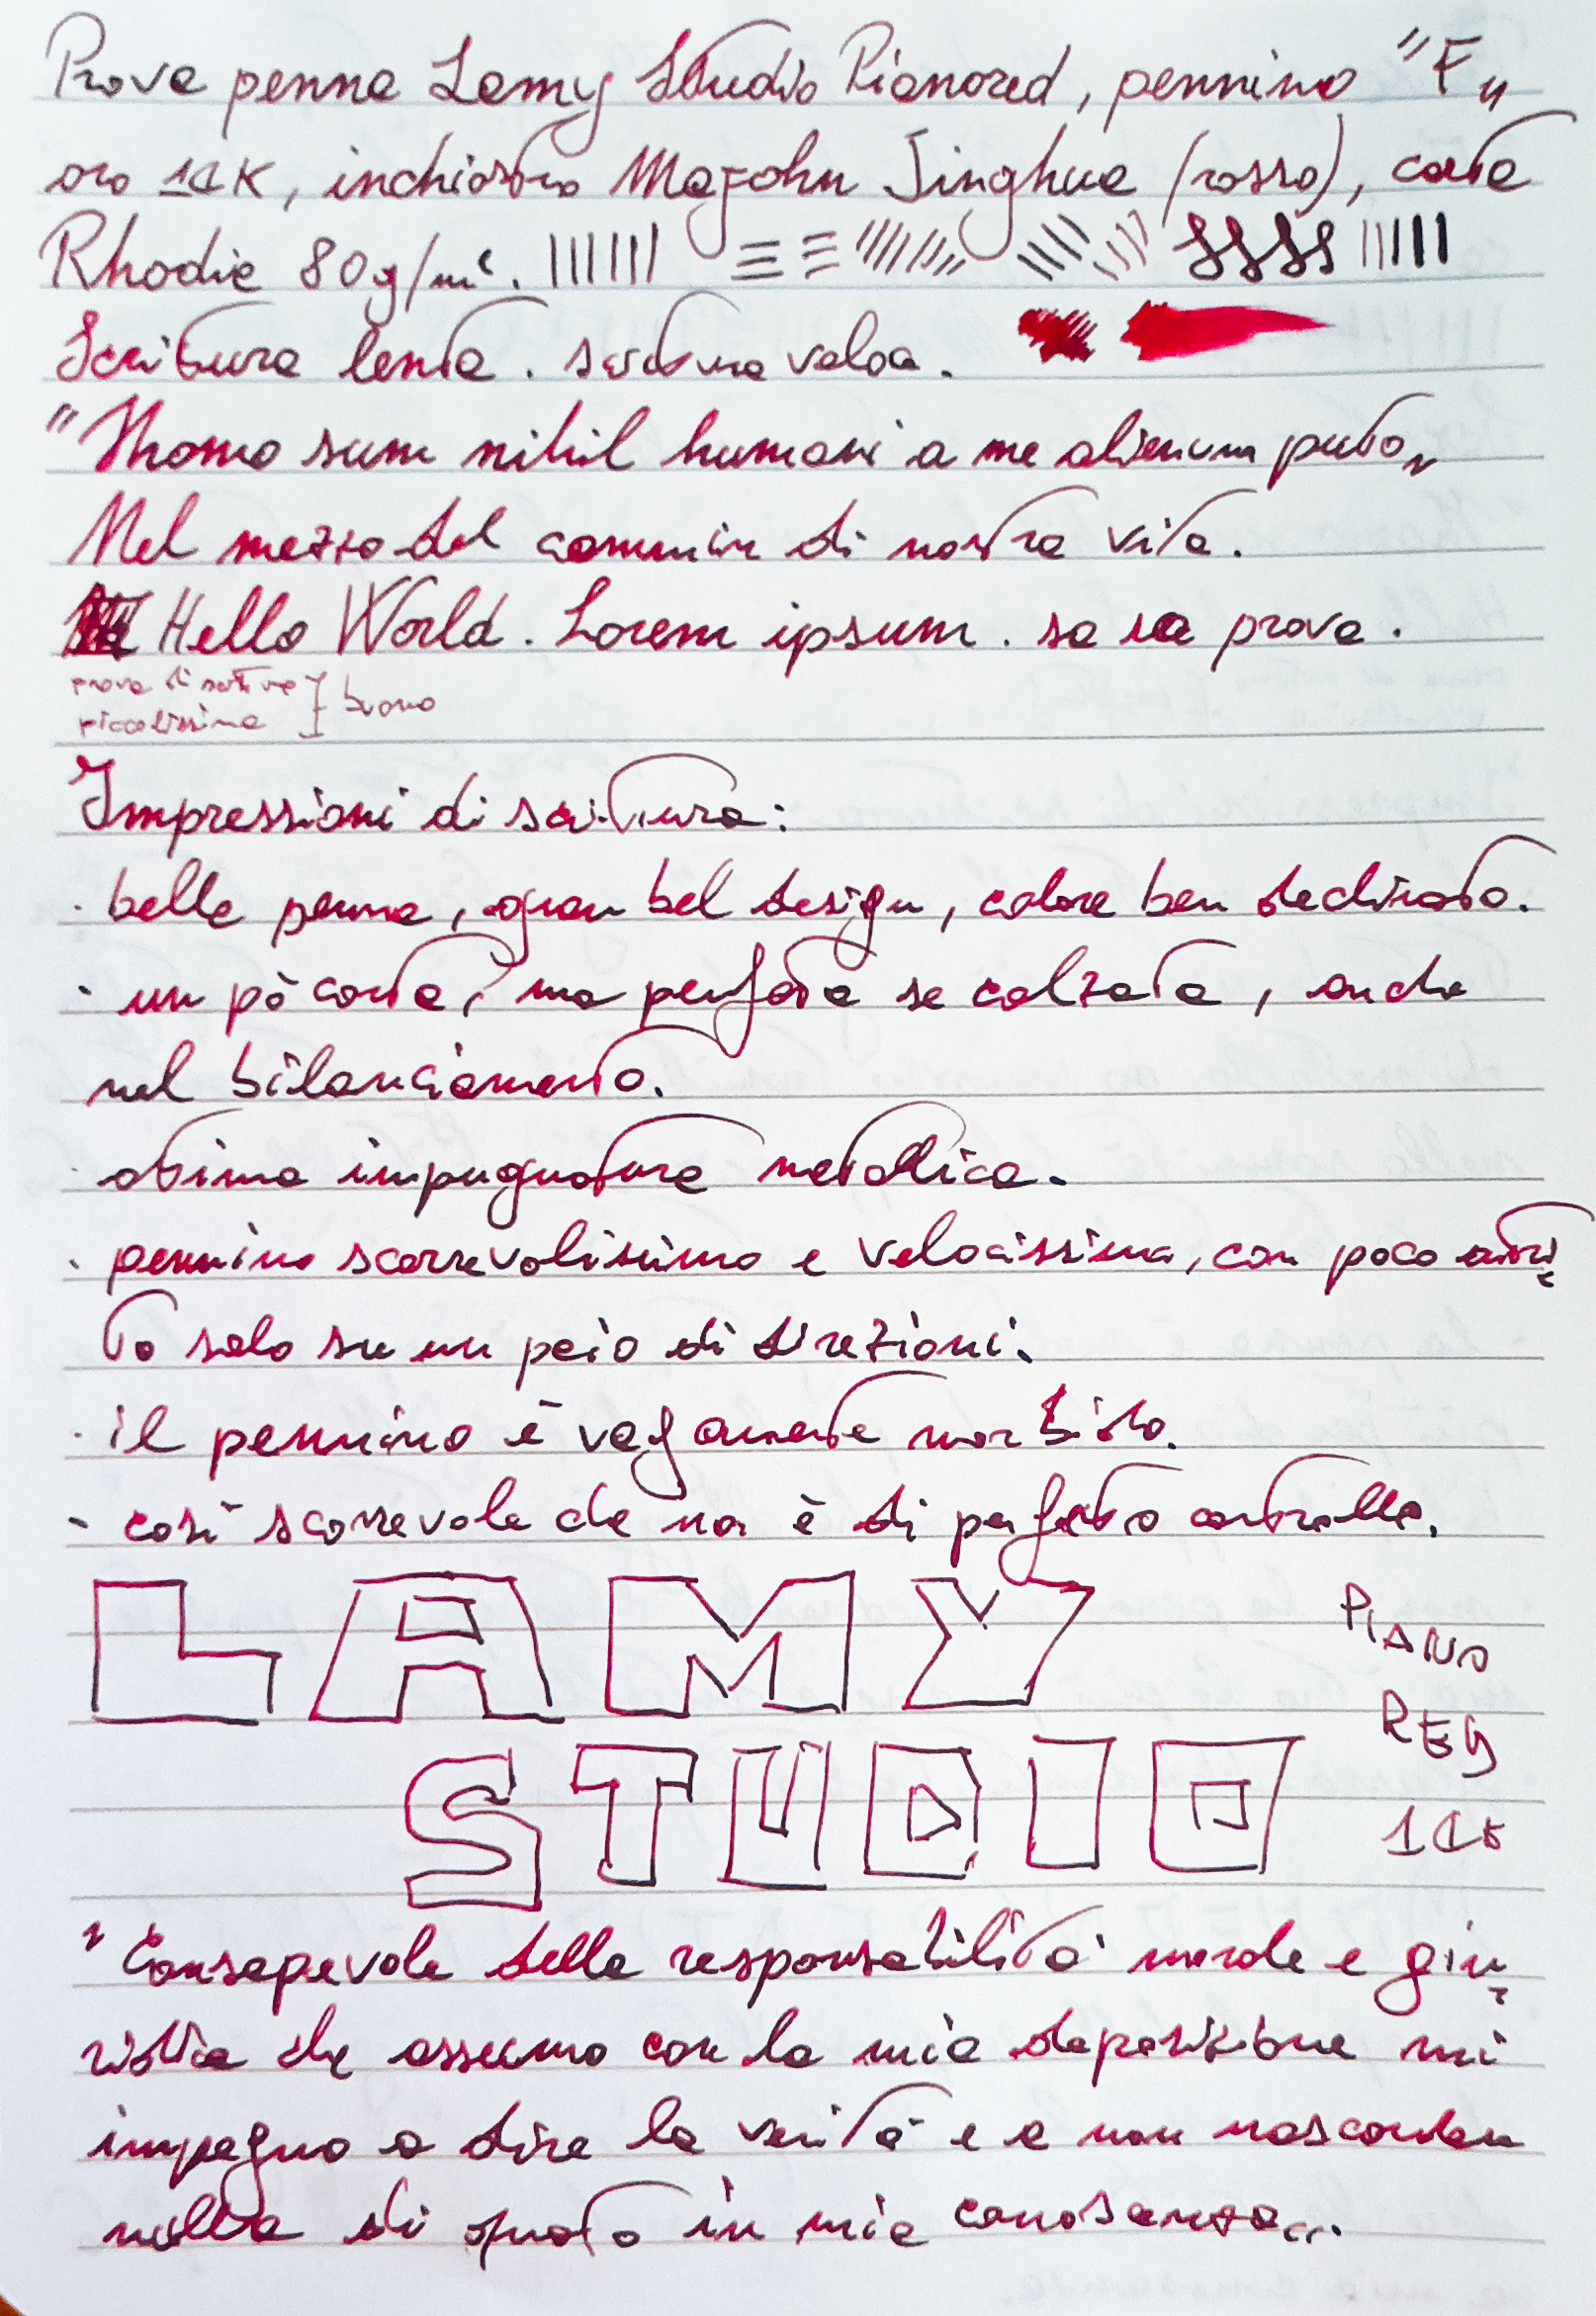 Prova penna Lamy Studio Pianored, pennino "F"
oro 14K, inchiostro Majohn Jinghua (rosso), carta
Rhodia 80g/m².
Scrittura lenta. scrittura veloce.
"Homo sum nihil humani a me alienum puto"
Nel mezzo del cammin di nostra vita.
Hello World. Lorem ipsum. sa sa prova.
prova di scrittura
piccolissima } buono
Impressioni di scrittura:
· bella penna, gran bel design, colore ben declinato.
· un pò corta, ma perfetta se calzata, anche
nel bilanciamento.
· ottima impugnatura metallica.
· pennino scorrevolissimo e velocissimo, con poco attri-
to solo su un paio di direzioni.
· il pennino è vagamente morbido.
· così scorrevole che non è di perfetto controllo.
LAMY
PIANO
RED
STUDIO
14K
"Consapevole della responsabilità morale e giu-
ridica che assumo con la mia deposizione mi
impegno a dire la verità e a non nascondere
nulla di quato in mia conoscenza...